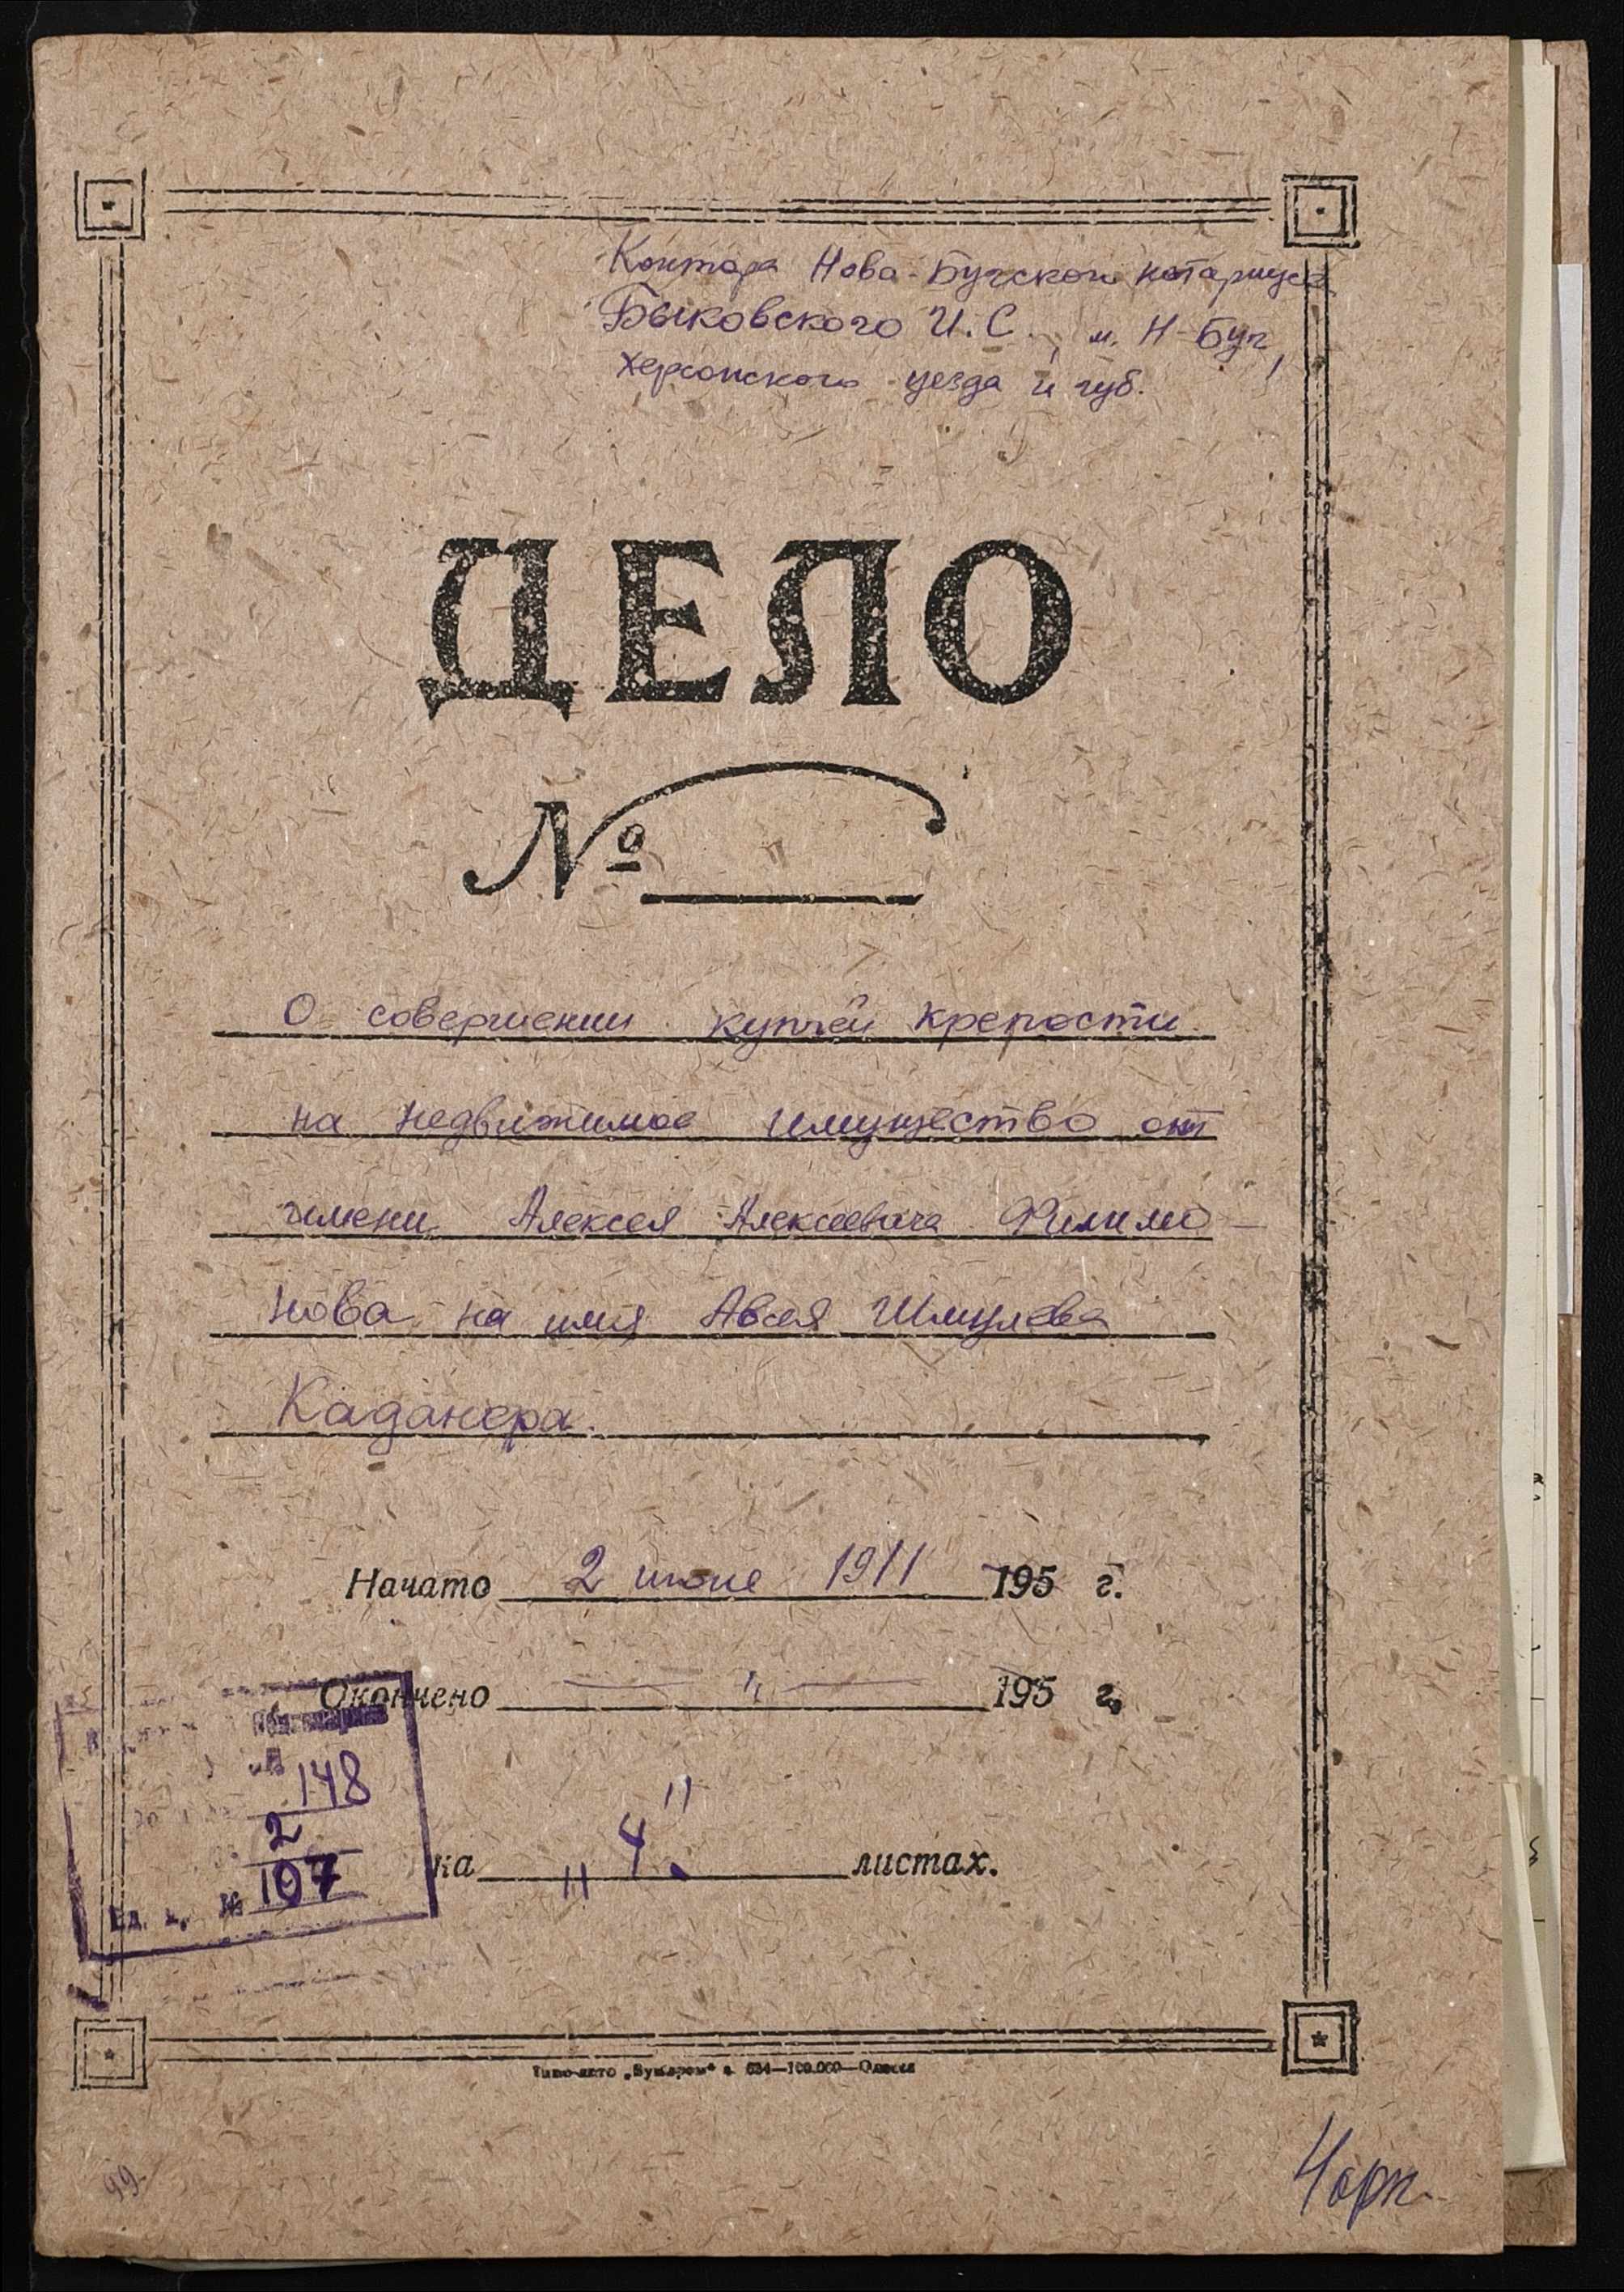 Контора Ново-Бугского нотариуса
Быковского И.С., м. Н-Буг,
Херсонского уезда и губ.
ДЕЛО
№
О совершении купчей крепости
на недвижимое имущество от
имени Алексея Алексеевича Филимо-
нова на имя Авсея Шмулева
Каданера.
Начато 2 июне 1911 195 г.
Окончено — " — 195 г.
148
2
Ед. х. № 107
на "4" листах.
634—100.000—Одесса
99